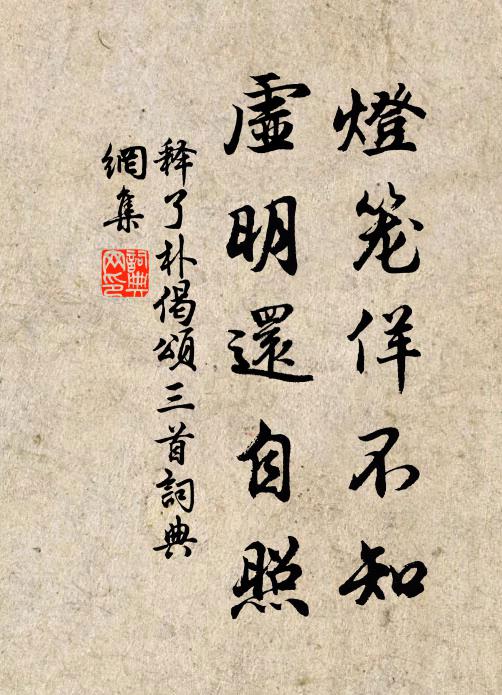 燈笼佯不知
虛明還自照
释了朴偈頌三首詞典
網集
詞典
网印